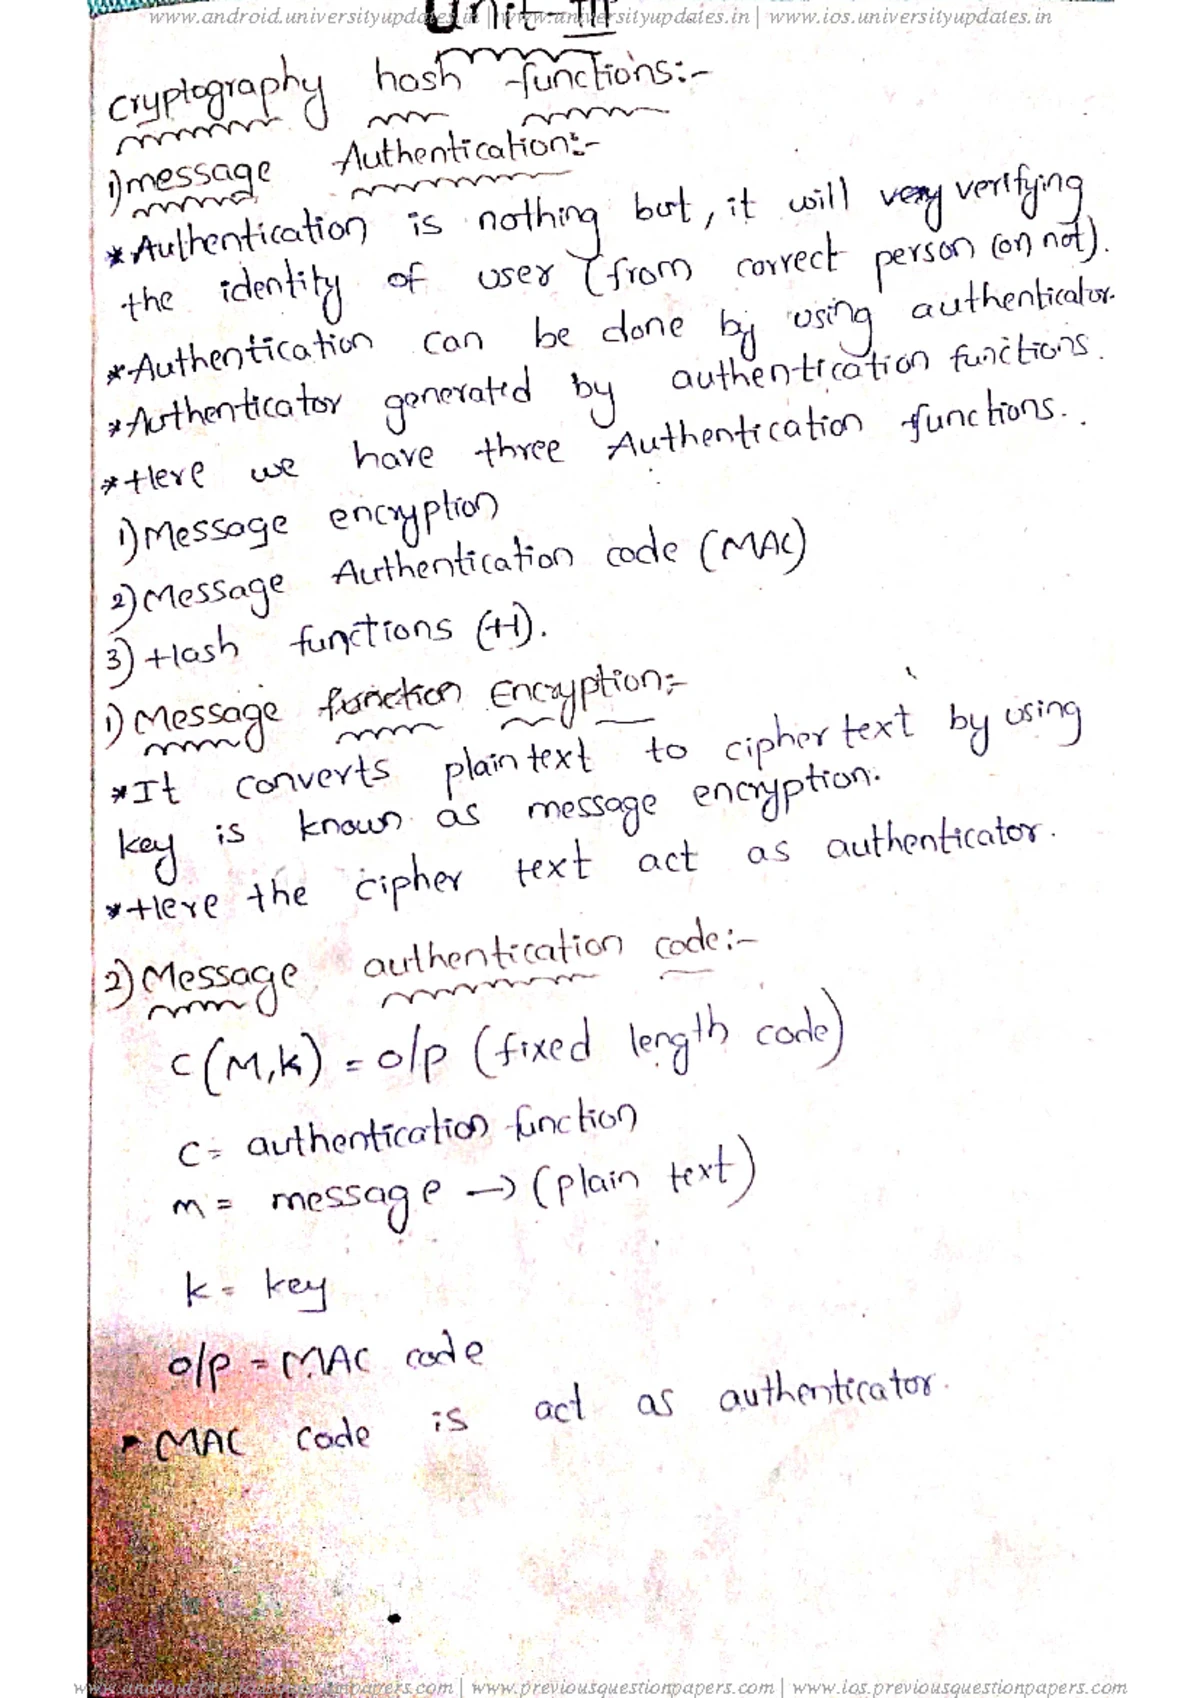 www.android.universityupdates.in | www.universityupdates.in | www.ios.universityupdates.in
Unit-III
Cryptography hash functions:-
1) message Authentication:-
* Authentication is nothing but, it will very verifying
the identity of user (from correct person (or) not).
* Authentication can be done by using authenticator.
* Authenticator generated by authentication functions.
* Here we have three Authentication functions.
1) Message encryption
2) Message Authentication code (MAC)
3) Hash functions (H).
1) Message function Encryption:-
* It converts plain text to cipher text by using
key is known as message encryption.
* Here the cipher text act as authenticator.
2) Message authentication code:-
C(M,K) = o/p (fixed length code)
C = authentication function
m = message → (plain text)
k = key
o/p = MAC code
• MAC code is act as authenticator.
www.android.previousquestionpapers.com | www.previousquestionpapers.com | www.ios.previousquestionpapers.com